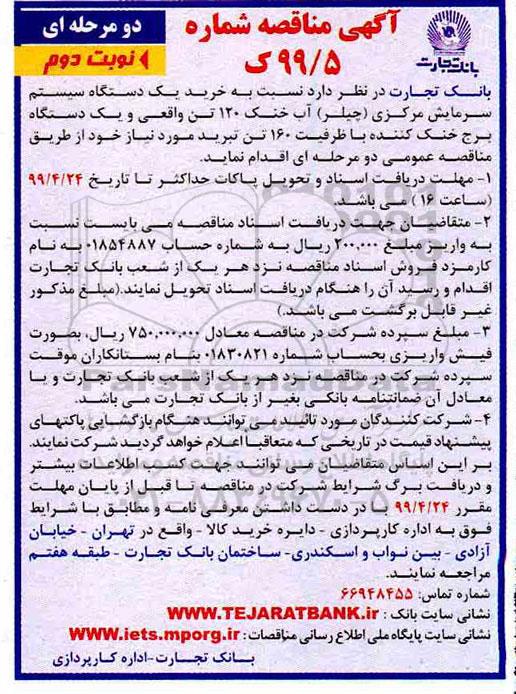 آگهی مناقصه شماره
۹۹/۵ ک
دو مرحله ای
نوبت دوم
بانک تجارت
بانک تجارت در نظر دارد نسبت به خرید یک دستگاه سیستم
سرمایش مرکزی (چیلر) آب خنک ۱۲۰ تن واقعی و یک دستگاه
برج خنک کننده با ظرفیت ۱۶۰ تن تبرید مورد نیاز خود از طریق
مناقصه عمومی دو مرحله ای اقدام نماید.
۱- مهلت دریافت اسناد و تحویل پاکات حداکثر تا تاریخ ۹۹/۴/۲۴
(ساعت ۱۶ ) می باشد.
۲- متقاضیان جهت دریافت اسناد مناقصه می بایست نسبت
به واریز مبلغ ۲۰۰.۰۰۰ ریال به شماره حساب ۰۱۸۵۴۸۸۷ به نام
کارمزد فروش اسناد مناقصه نزد هر یک از شعب بانک تجارت
اقدام و رسید آن را هنگام دریافت اسناد تحویل نمایند.(مبلغ مذکور
غیر قابل برگشت می باشد.)
۳- مبلغ سپرده شرکت در مناقصه معادل ۷۵۰.۰۰۰.۰۰۰ ریال، بصورت
فیش واریزی بحساب شماره ۰۱۸۳۰۸۲۱ بنام بستانکاران موقت
سپرده شرکت در مناقصه نزد هر یک از شعب بانک تجارت و یا
معادل آن ضمانتنامه بانکی بغیر از بانک تجارت می باشد.
۴- شرکت کنندگان مورد تائید می توانند هنگام بازگشایی پاکتهای
پیشنهاد قیمت در تاریخی که متعاقبا اعلام خواهد گردید شرکت نمایند.
بر این اساس متقاضیان می توانند جهت کسب اطلاعات بیشتر
و دریافت برگ شرایط شرکت در مناقصه تا قبل از پایان مهلت
مقرر ۹۹/۴/۲۴ با در دست داشتن معرفی نامه و مطابق با شرایط
فوق به اداره کارپردازی - دایره خرید کالا - واقع در تهران - خیابان
آزادی - بین نواب و اسکندری- ساختمان بانک تجارت - طبقه هفتم
مراجعه نمایند.
شماره تماس: ۶۶۹۴۸۴۵۵
نشانی سایت بانک : WWW.TEJARATBANK.ir
نشانی سایت پایگاه ملی اطلاع رسانی مناقصات : WWW.iets.mporg.ir
بانک تجارت-اداره کارپردازی